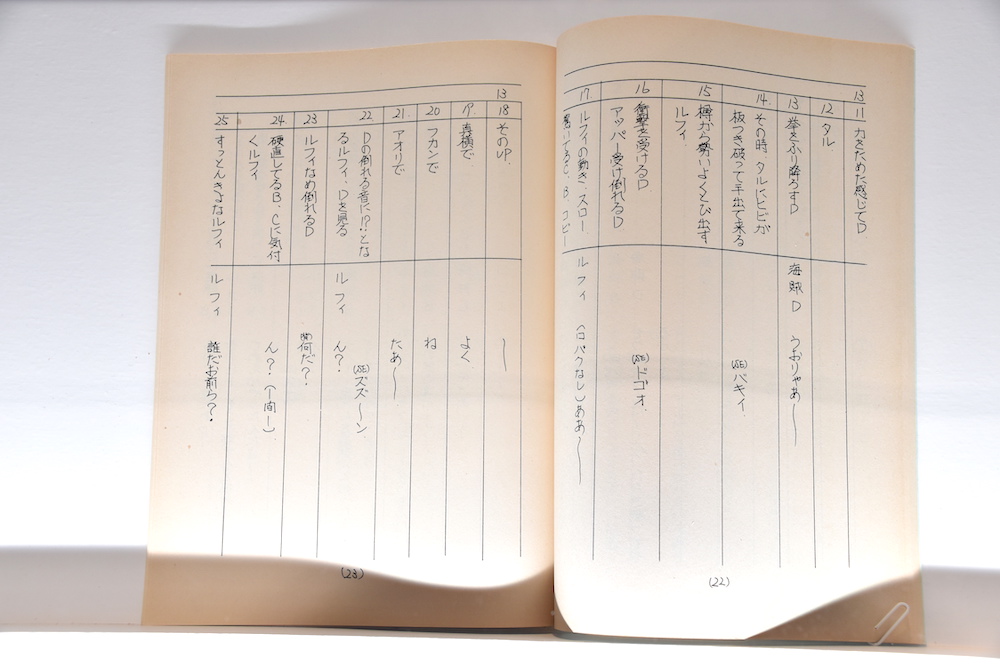 13
11
力をためた感じでD
12
タル
13
拳をふり降ろすD
海賊D
うおりゃあ〜
14
その時、タルにヒビが
板つき破って手出て来る
(SE)バキィ
15
樽から勢いよくとび出す
ルフィ
16
衝撃を受けるD
アッパー受け倒れるD
(SE)ドゴオ
17.
ルフィの動き、スロー.
ルフィ
(口パクなし)ああ〜
13
18
そのUP.
〜
19.
真横で
よく
20
フカンで
ね
21.
アオリで
たあ〜.
22
Dの倒れる音に!?となるルフィ、Dを見る
ルフィ
(SE)ズズ〜ン
ん?
23
ルフィなめ倒れるD
何だ?
24
硬直してるB、Cに気付
くルフィ
ん?(一間一)
25
すっとんきょなルフィ
ルフィ
誰だお前ら?
(22)
(23)